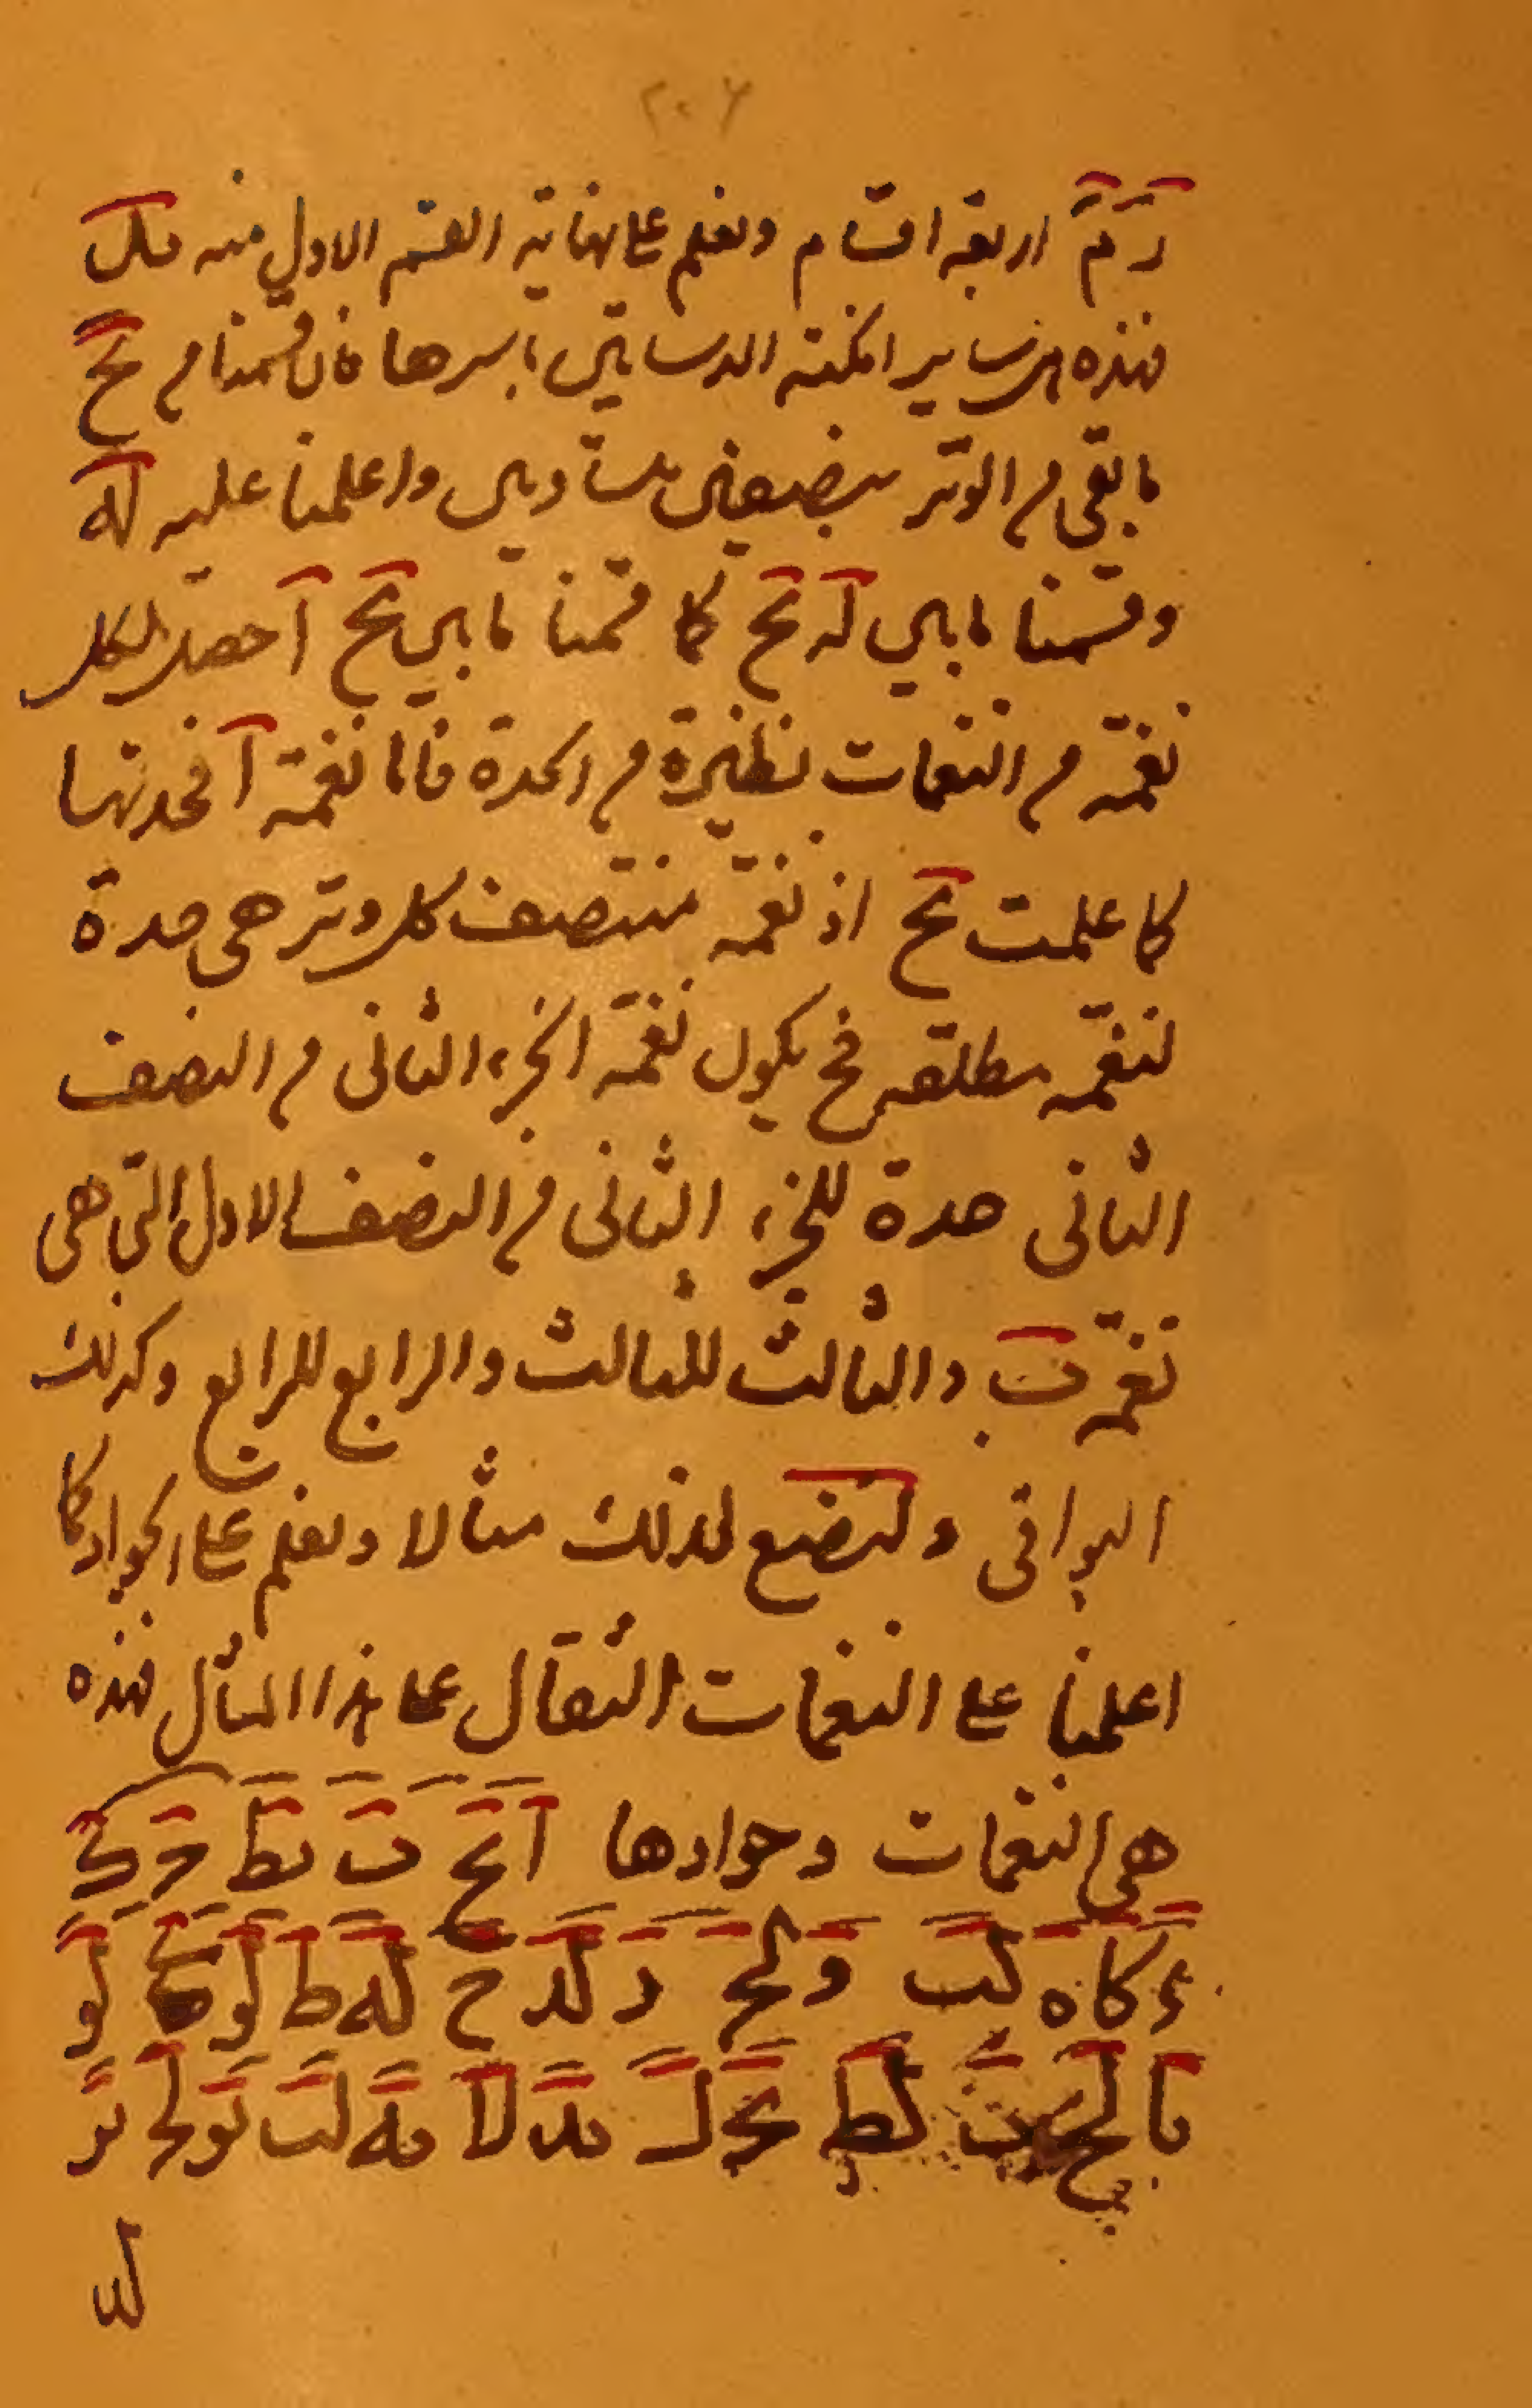 ٢٠٦
زَ مَ اربعة اقسام ونعلم على نهاية القسم الاول منه
فهذه هي ساير امكنة الدساتين باسرها فان قسمنا من يح
ما بقي من الوتر بنصفين متساويين واعلمنا عليه له
وقسمنا ما بين له يح كما قسمنا ما بين يح ا حصل لكل
نغمة من النغمات نظيرة من الحدة فاما نغمة ا فحدتها
كما علمت يح اذ نغمة منتصف كل وتر هي حدة
لنغمة مطلقه فح يكون نغمة الجزء الثاني من النصف
الثاني حدة للجزء الثاني من النصف الاول التي هي
نغمة ب والثالث للثالث والرابع للرابع وكذلك
البواقي ولنضع لذلك مثالا ونعلم على الحواد كما
اعلمنا على النغمات الثقال على هذا المثال فهذه
هي النغمات وحوادها ا يح ب يط ج ك
د كا ه كب و كج ز كد ح كه ط كو ي كز
يا كح يب كط يج ل يد لا يه لب يو لج يز
لد